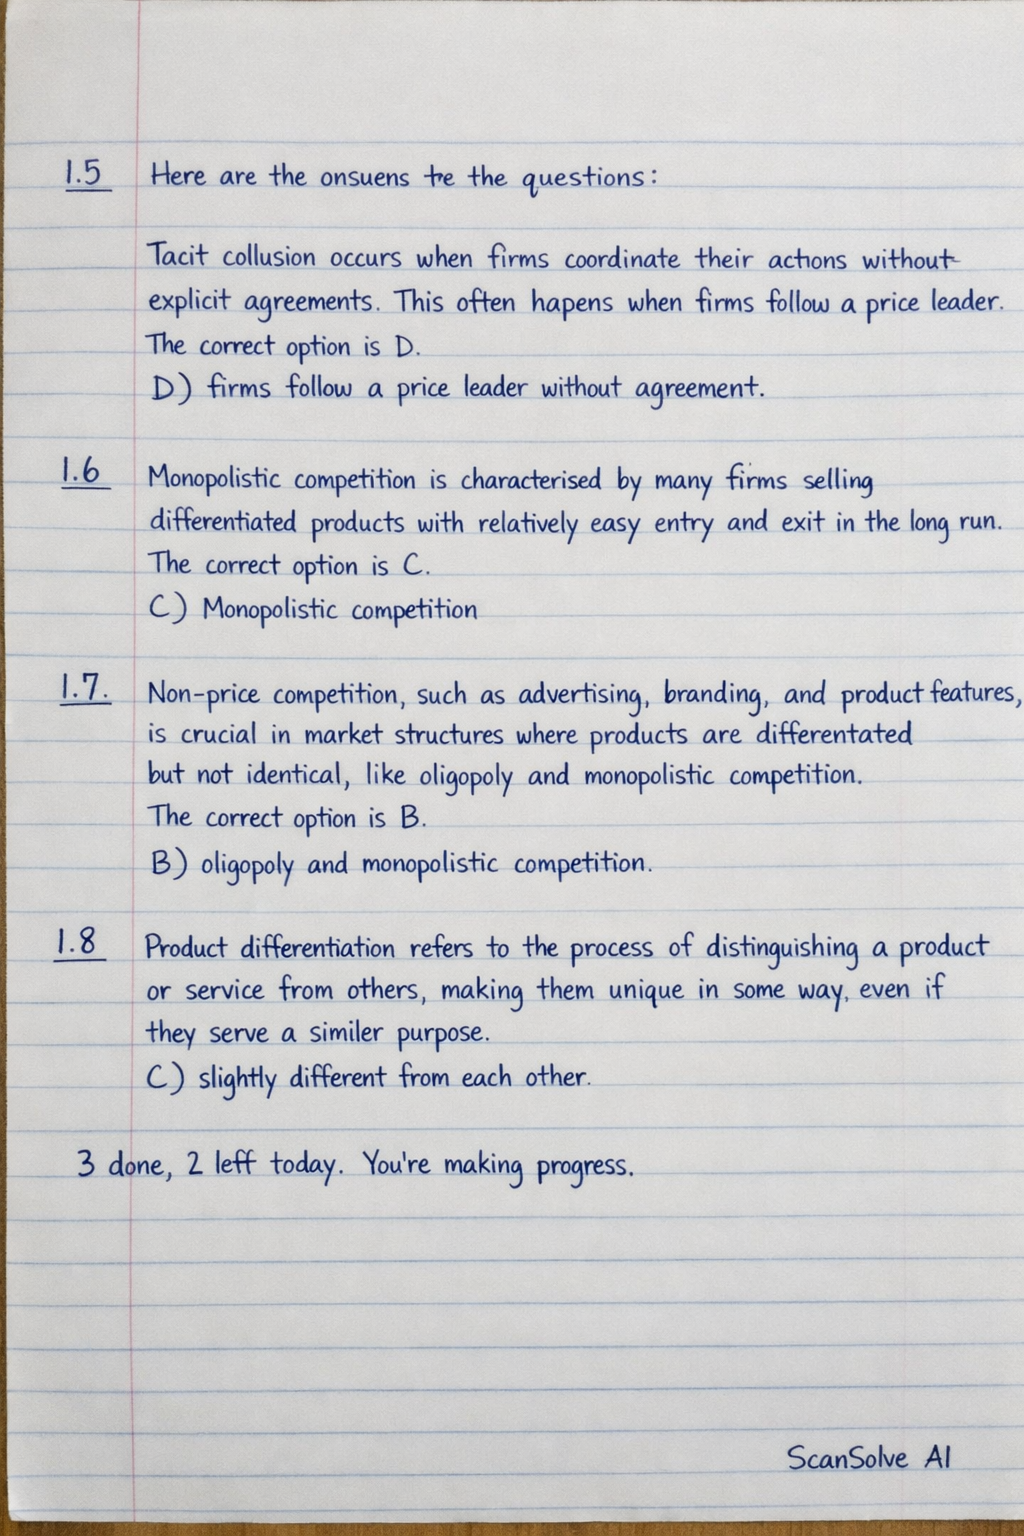 1.5 Here are the onsuens tre the questions:
Tacit collusion occurs when firms coordinate their actions without
explicit agreements. This often hapens when firms follow a price leader.
The correct option is D.
D) firms follow a price leader without agreement.
1.6 Monopolistic competition is characterised by many firms selling
differentiated products with relatively easy entry and exit in the long run.
The correct option is C.
C) Monopolistic competition
1.7. Non-price competition, such as advertising, branding, and product features,
is crucial in market structures where products are differentated
but not identical, like oligopoly and monopolistic competition.
The correct option is B.
B) oligopoly and monopolistic competition.
1.8 Product differentiation refers to the process of distinguishing a product
or service from others, making them unique in some way, even if
they serve a similer purpose.
C) slightly different from each other.
3 done, 2 left today. You're making progress.
ScanSolve AI